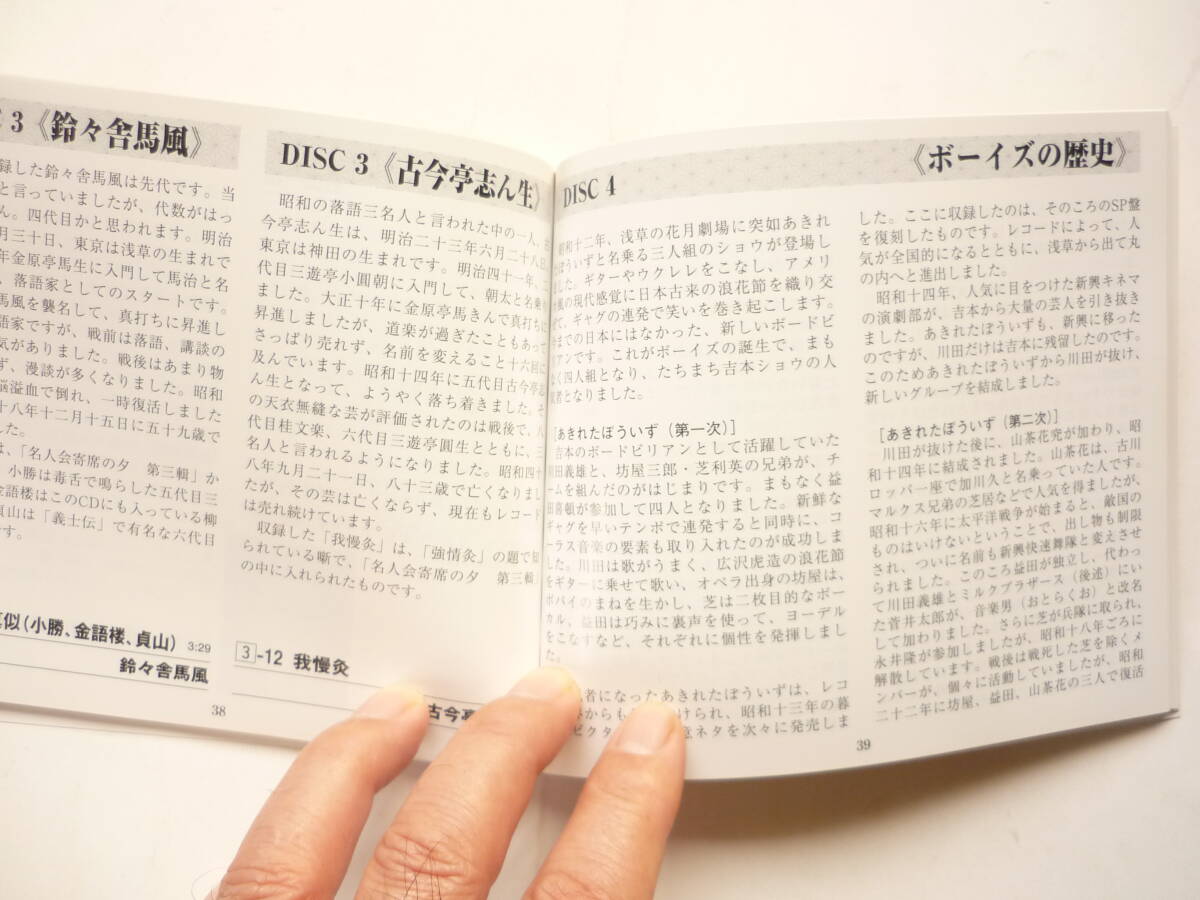 3《鈴々舎馬風》
録した鈴々舎馬風は先代です。当
と言っていましたが、代数がはっ
ん。四代目かと思われます。明治
月三十日、東京は浅草の生まれで
年金原亭馬生に入門して馬治と名
、落語家としてのスタートです。
馬風を襲名して、真打ちに昇進し
語家ですが、戦前は落語、講談の
気がありました。戦後はあまり物
ず、漫談が多くなりました。昭和
脳溢血で倒れ、一時復活しました
十八年十二月十五日に五十九歳で
した。
は、「名人会寄席の夕　第三輯」か
小勝は毒舌で鳴らした五代目三
金語楼はこのCDにも入っている柳
貞山は「義士伝」で有名な六代目
です。
真似(小勝、金語楼、貞山) 3:29
鈴々舎馬風
38
DISC 3《古今亭志ん生》
昭和の落語三名人と言われた中の一人、
今亭志ん生は、明治二十三年六月二十八日、
東京は神田の生まれです。明治四十一年、二
代目三遊亭小圓朝に入門して、朝太と名乗
ました。大正十年に金原亭馬きんで真打ちに
昇進しましたが、道楽が過ぎたこともあって
さっぱり売れず、名前を変えること十六回に
及んでいます。昭和十四年に五代目古今亭志
ん生となって、ようやく落ち着きました。そ
の天衣無縫な芸が評価されたのは戦後で、八
代目桂文楽、六代目三遊亭圓生とともに、三
名人と言われるようになりました。昭和四十
八年九月二十一日、八十三歳で亡くなりまし
たが、その芸は亡くならず、現在もレコード
は売れ続けています。
収録した「我慢灸」は、「強情灸」の題で知
られている噺で、「名人会寄席の夕　第三輯」
の中に入れられたものです。
3-12 我慢灸
古今亭
DISC 4
《ボーイズの歴史》
昭和十二年、浅草の花月劇場に突如あきれ
たぼういずと名乗る三人組のショウが登場し
ました。ギターやウクレレをこなし、アメリ
風の現代感覚に日本古来の浪花節を織り交
ぜて、ギャグの連発で笑いを巻き起こします。
までの日本にはなかった、新しいボードビ
アンです。これがボーイズの誕生で、まも
なく四人組となり、たちまち吉本ショウの人
気者となりました。
[あきれたぼういず（第一次）]
吉本のボードビリアンとして活躍していた
川田義雄と、坊屋三郎・芝利英の兄弟が、チ
ームを組んだのがはじまりです。まもなく益
田喜頓が参加して四人となりました。新鮮な
ギャグを早いテンポで連発すると同時に、コ
ーラス音楽の要素も取り入れたのが成功しま
した。川田は歌がうまく、広沢虎造の浪花節
をギターに乗せて歌い、オペラ出身の坊屋は、
ポパイのまねを生かし、芝は二枚目的なボー
カル、益田は巧みに裏声を使って、ヨーデル
をこなすなど、それぞれに個性を発揮しまし
た。
者になったあきれたぼういずは、レコ
からも
けられ、昭和十三年の暮
ビクタ
意ネタを次々に発売しま
した。ここに収録したのは、そのころのSP盤
を復刻したものです。レコードによって、人
気が全国的になるとともに、浅草から出て丸
の内へと進出しました。
昭和十四年、人気に目をつけた新興キネマ
の演劇部が、吉本から大量の芸人を引き抜き
ました。あきれたぼういずも、新興に移った
のですが、川田だけは吉本に残留したのです。
このためあきれたぼういずから川田が抜け、
新しいグループを結成しました。
[あきれたぼういず（第二次）]
川田が抜けた後に、山茶花究が加わり、昭
和十四年に結成されました。山茶花は、古川
ロッパ一座で加川久と名乗っていた人です。
マルクス兄弟の芝居などで人気を得ましたが、
昭和十六年に太平洋戦争が始まると、敵国の
ものはいけないということで、出し物も制限
され、ついに名前も新興快速舞隊と変えさせ
られました。このころ益田が独立し、代わっ
て川田義雄とミルクブラザース（後述）にい
た菅井太郎が、音楽男（おとらくお）と改名
して加わりました。さらに芝が兵隊に取られ、
永井隆が参加しましたが、昭和十八年ごろに
解散しています。戦後は戦死した芝を除くメ
ンバーが、個々に活動していましたが、昭和
二十二年に坊屋、益田、山茶花の三人で復活
39